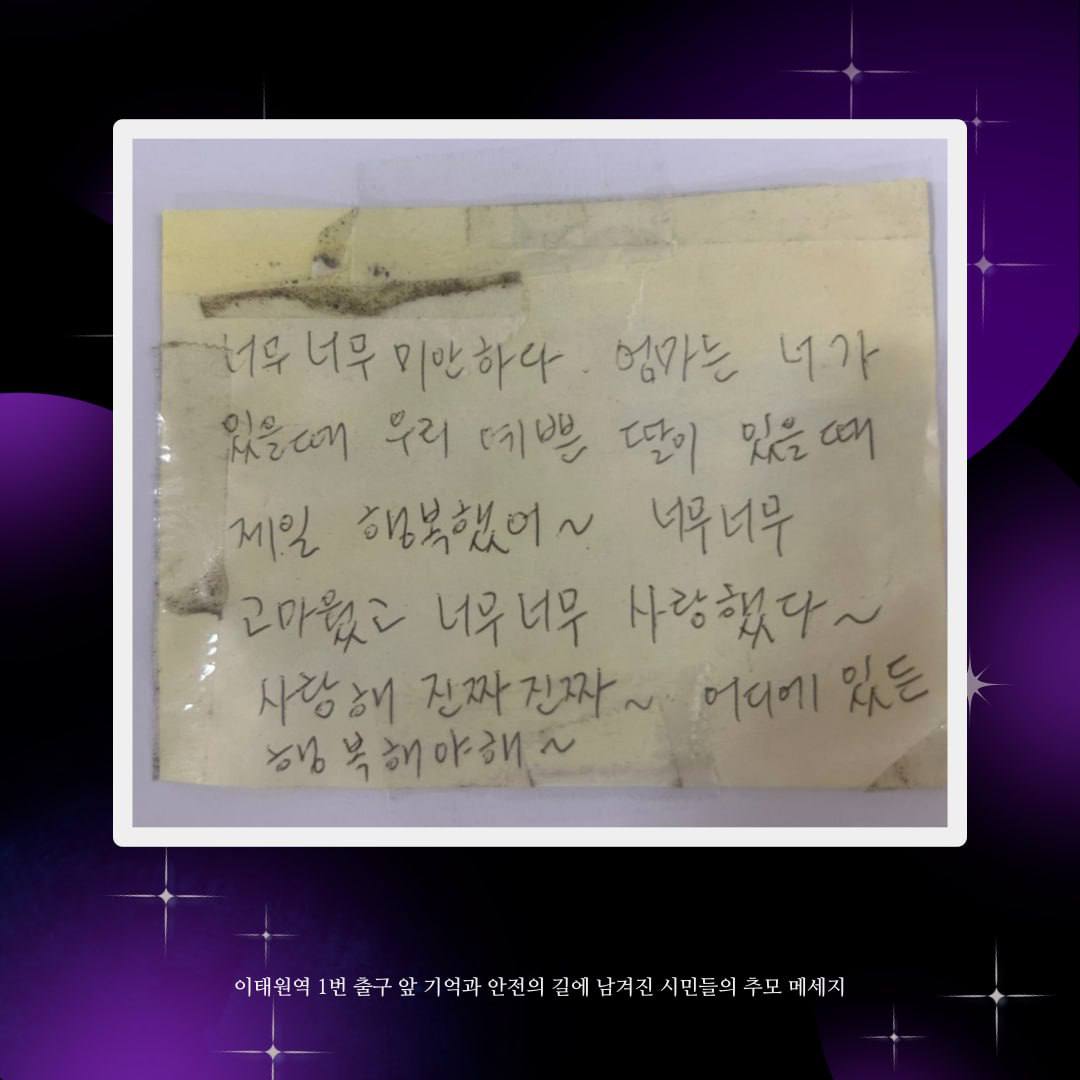 너무 너무 미안하다. 엄마는 너가
있을때 우리 예쁜 딸이 있을때
제일 행복했어~ 너무너무
고마웠고 너무너무 사랑했다~
사랑해 진짜진짜~ 어디에 있든
행복해야해~
이태원역 1번 출구 앞 기억과 안전의 길에 남겨진 시민들의 추모 메세지